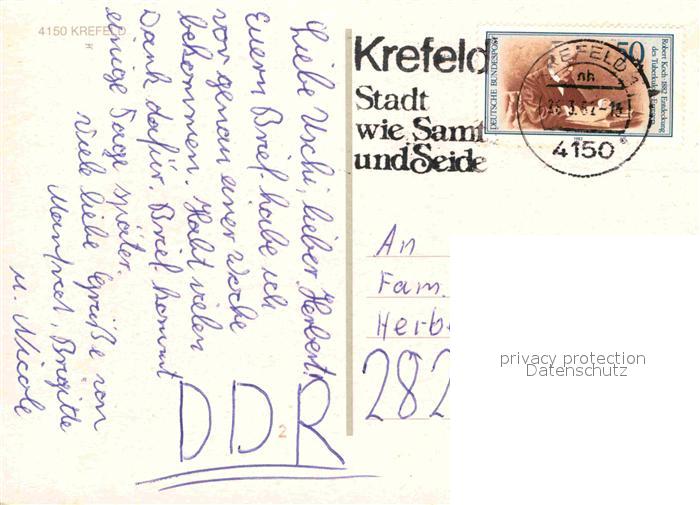 4150 KREFELD
Liebe Uschi, lieber Herbert!
Euern Brief habe ich
vor genau einer Woche
bekommen. Habt vielen
Dank dafür. Brief kommt
einige Tage später.
Viele liebe Grüße von
Manfred, Brigitte
u. Nicole
DDR
2
Krefeld
Stadt
wie Samt
und Seide
50
DEUTSCHE BUNDESPOST
Robert Koch · 1882 Entdeckung
des Tuberkulose-Erregers
1982
KREFELD 1
nh
4150
An
Fam.
Herb
282
privacy protection
Datenschutz